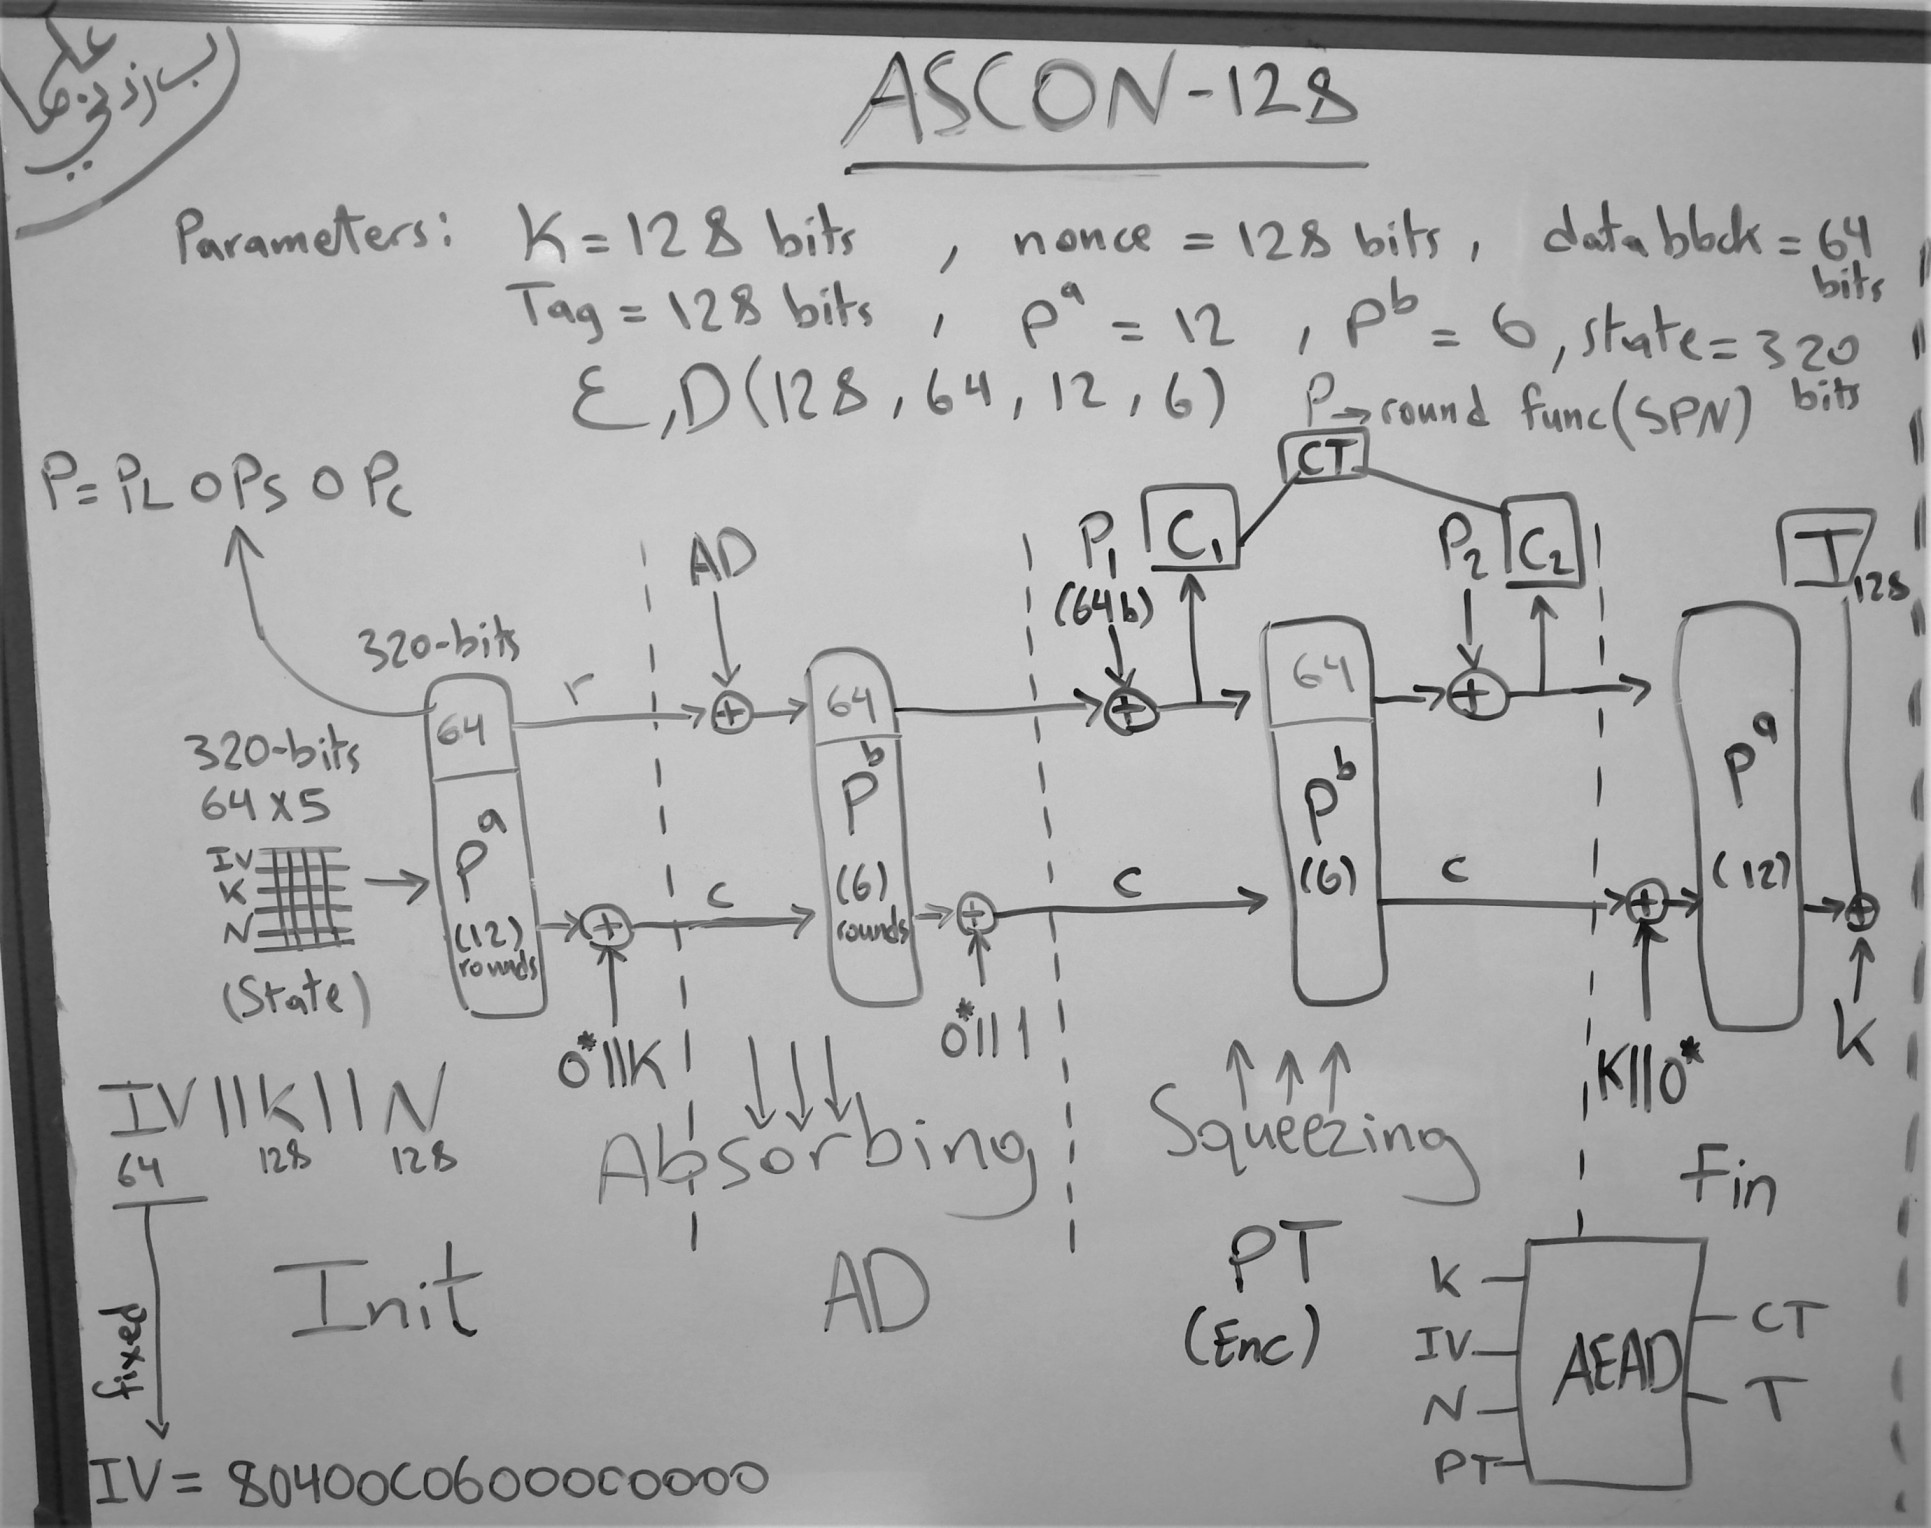 رب زدني علما
ASCON-128
Parameters: K = 128 bits , nonce = 128 bits , data block = 64 bits
Tag = 128 bits , P^a = 12 , P^b = 6 , state = 320 bits
Ɛ,D(128 , 64 , 12 , 6) P→round func(SPN)
P= PL o PS o PC
CT
P1 (64b)
C1
P2
C2
T 128
AD
320-bits
64
r
64
64
320-bits
64 x 5
IV
K
N
(State)
P^a
(12)
rounds
c
P^b
(6)
rounds
c
P^b
(6)
c
P^a
(12)
0*||K
0*||1
K||0*
K
IV || K || N
64 128 128
Absorbing
Squeezing
Fin
fixed
Init
AD
PT
(Enc)
K
IV
N
PT
AEAD
CT
T
IV = 80400C0600000000